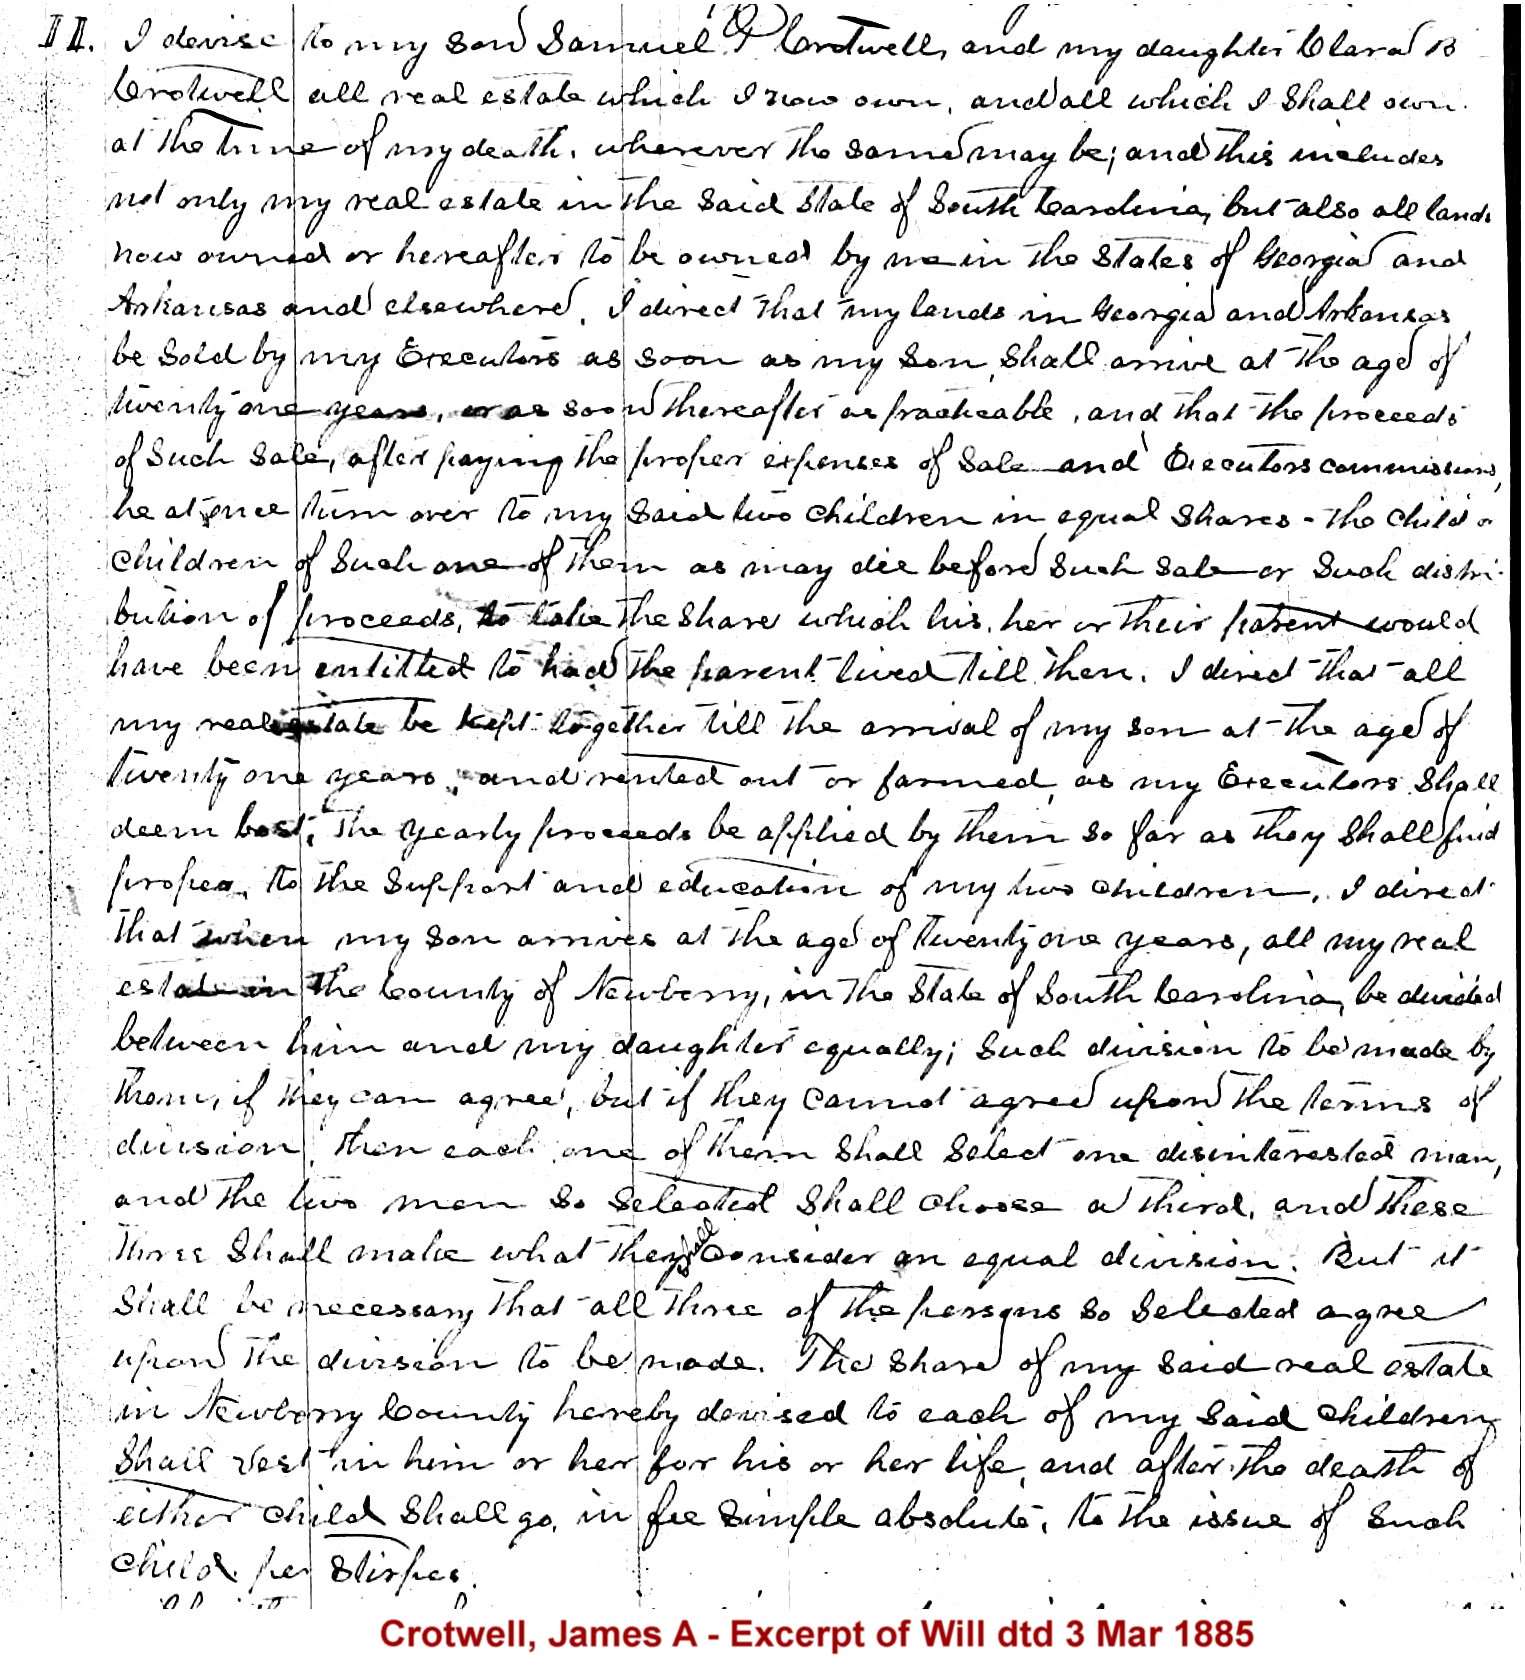 II. I devise to my son Samuel P Crotwell, and my daughter Clara B
Crotwell all real estate which I now own, and all which I shall own
at the time of my death, wherever the same may be; and this includes
not only my real estate in the said State of South Carolina, but also all lands
now owned or hereafter to be owned by me in the States of Georgia and
Arkansas and elsewhere. I direct that my lands in Georgia and Arkansas
be sold by my Executors as soon as my son, shall arrive at the age of
twenty one years, or as soon thereafter as practicable, and that the proceeds
of such sale, after paying the proper expenses of sale and Executors commissions,
be at once turn over to my said two children in equal shares - the child or
children of such one of them as may die before such sale or such distri-
bution of proceeds, to take the share which his, her or their parent would
have been entitled to had the parent lived till then. I direct that all
my real estate be kept together till the arrival of my son at the age of
twenty one years, and rented out or farmed, as my Executors shall
deem best, the yearly proceeds be applied by them so far as they shall find
proper, to the support and education of my two children. I direct
that when my son arrives at the age of twenty one years, all my real
estate in the County of Newberry, in the State of South Carolina, be divided
between him and my daughter equally; such division to be made by
them, if they can agree, but if they cannot agree upon the terms of
division, then each one of them shall select one disinterested man,
and the two men so selected shall choose a third, and these
three shall make what they shall consider an equal division. But it
shall be necessary that all three of the persons so selected agree
upon the division to be made. The share of my said real estate
in Newberry County hereby devised to each of my said children
shall vest in him or her for his or her life, and after the death of
either child shall go, in fee simple absolute, to the issue of such
child per stirpes.
Crotwell, James A - Excerpt of Will dtd 3 Mar 1885